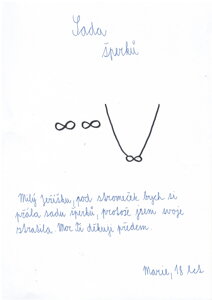 Sada
šperků
Milý Ježíšku, pod stromeček bych si
přála sadu šperků, protože jsem svoje
ztratila Moc Ti děkuji předem
Marie, 18 let